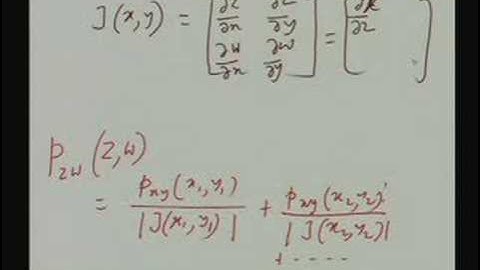 J(x,y) = [∂z/∂x ∂z/∂y
∂w/∂x ∂w/∂y] = [∂x/∂z ]
P_zw (z,w)
= P_xy (x₁,y₁) / |J(x₁,y₁)| + P_xy (x₂,y₂) / |J(x₂,y₂)|
+ ....